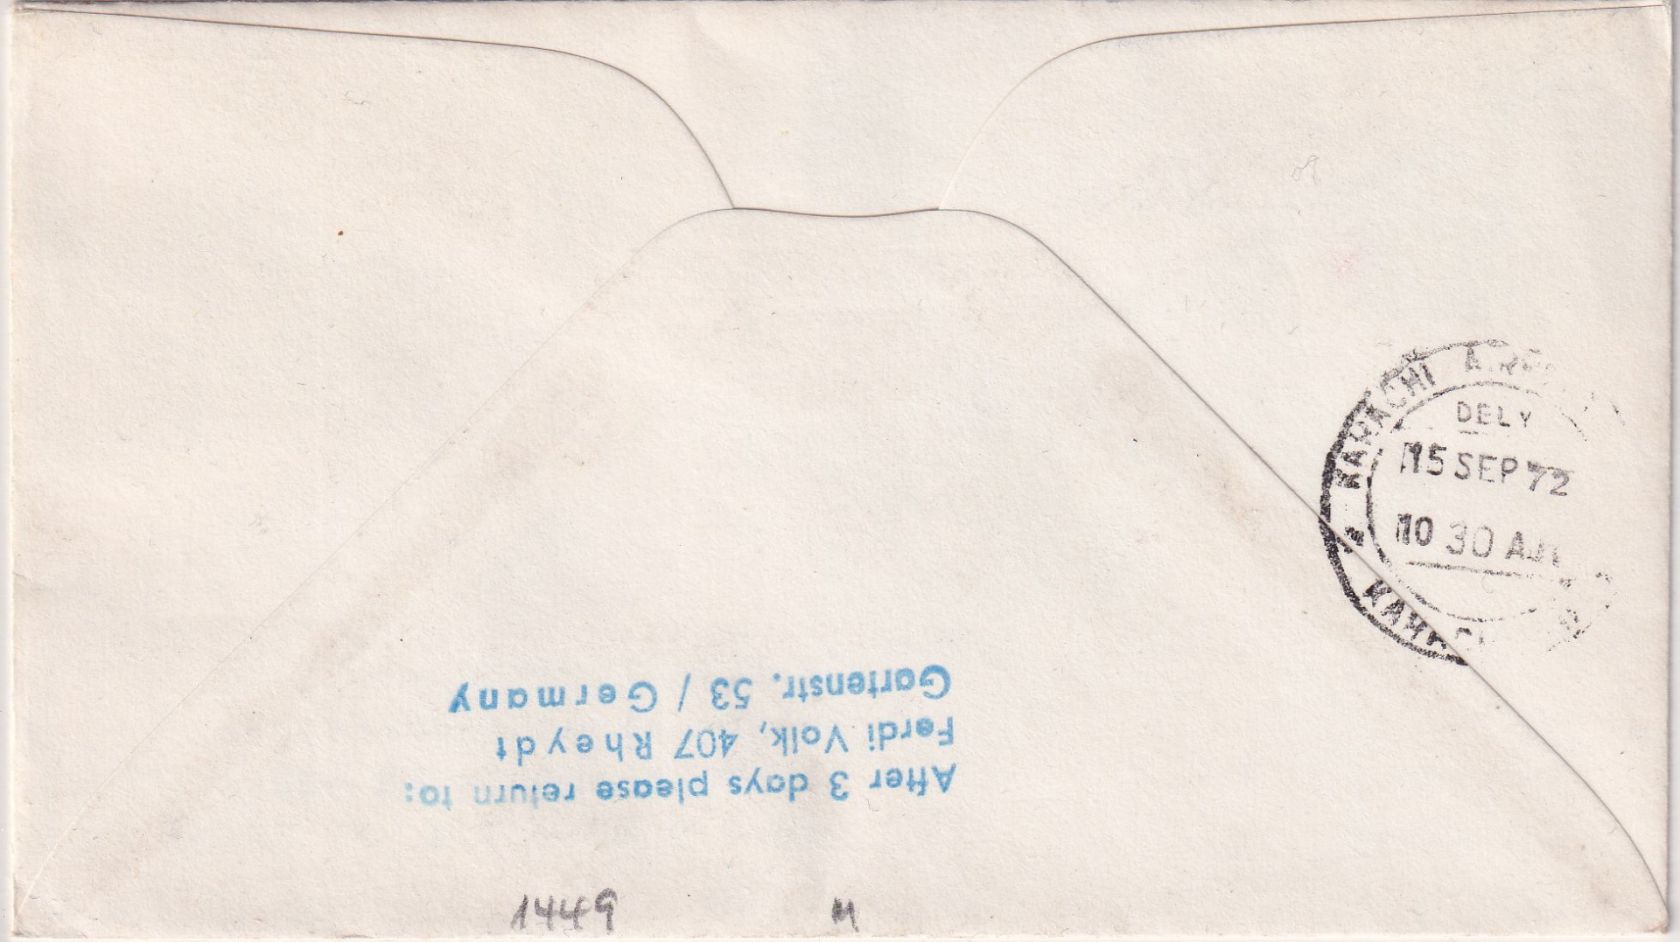 KARACHI
DELY
15 SEP 72
10 30 AM
After 3 days please return to:
Ferdi Volk, 407 Rheydt
Gartenstr. 53 / Germany
1449